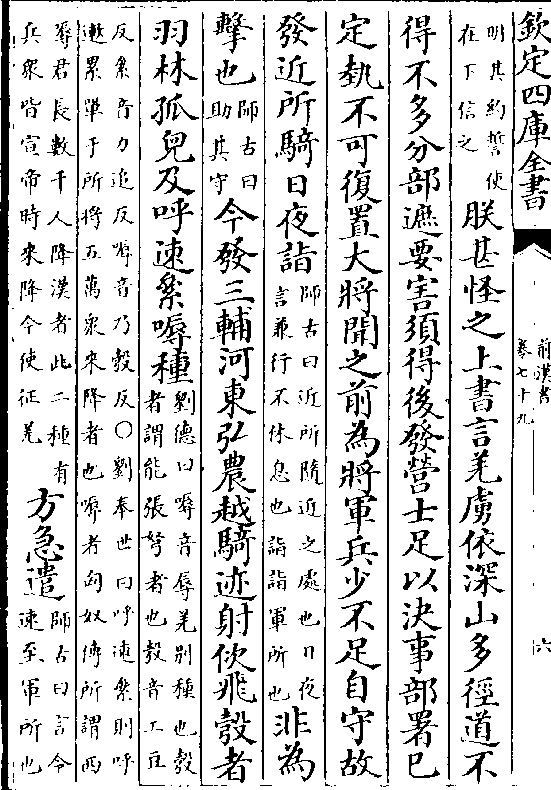 欽定四庫全書
前漢書
卷七十九
六
明其約誓使
在下信之
朕甚怪之上書言羌虜依深山多徑道不
得不多分部遮要害須得後發營士足以決事部署已
定埶不可復置大將聞之前為將軍兵少不足自守故
發近所騎日夜詣
師古曰近所隨近之處也日夜
言兼行不休息也詣詣軍所也
非為
擊也
師古曰
助其守
今發三輔河東弘農越騎迹射佽飛彀者
羽林孤兒及呼速絫嗕種
劉德曰嗕音辱羌别種也彀
者謂能張弩者也彀音工豆
反絫音力追反嗕音乃彀反○劉奉世曰呼速絫則呼
遬累單于所將五萬衆來降者也嗕者匈奴傳所謂西
嗕君長數千人降漢者此二種有
兵衆皆宣帝時來降今使征羌
方急遣
師古曰言今
速至軍所也